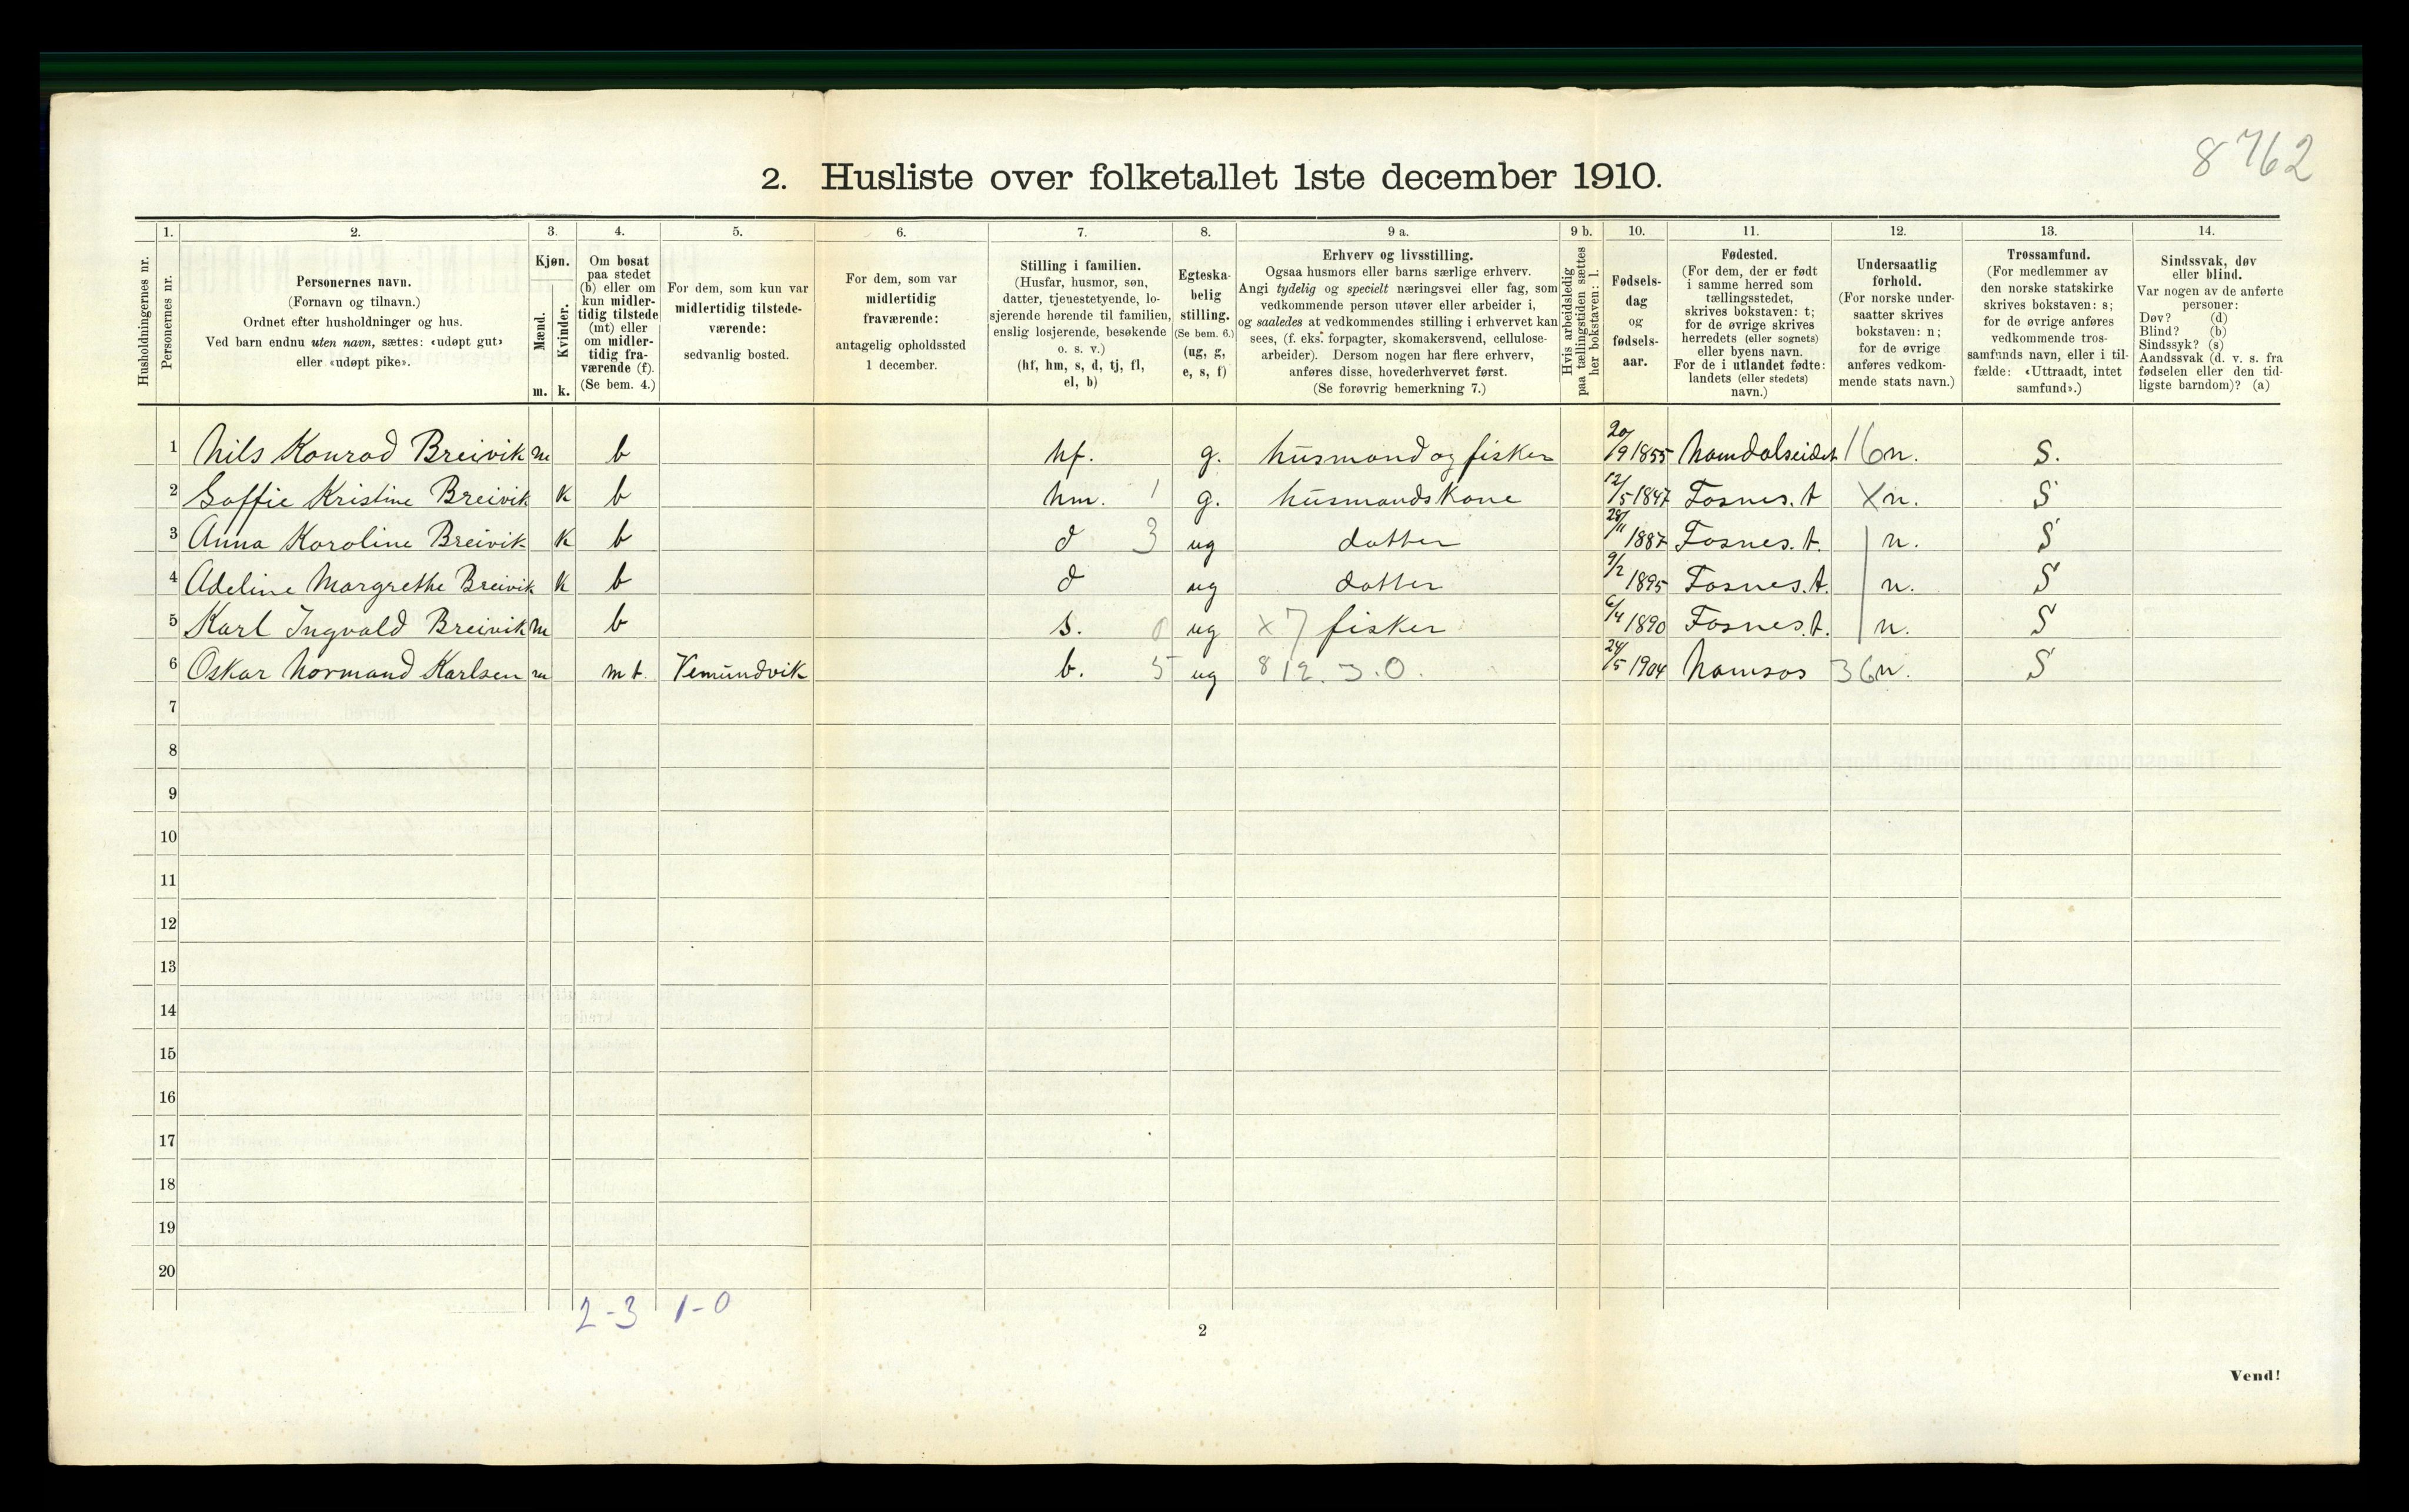 8762
2. Husliste over folketallet 1ste december 1910.
Husholdningernes nr.
1.
Personernes nr.
2.
Personernes navn.
(Fornavn og tilnavn.)
Ordnet efter husholdninger og hus.
Ved barn endnu uten navn, sættes: «udøpt gut»
eller «udøpt pike».
3.
Kjøn.
Mænd.
m.
Kvinder.
k.
4.
Om bosat
paa stedet
(b) eller om
kun midler-
tidig tilstede
(mt) eller
om midler-
tidig fra-
værende (f).
(Se bem. 4.)
5.
For dem, som kun var
midlertidig tilstede-
værende:
sedvanlig bosted.
6.
For dem, som var
midlertidig
fraværende:
antagelig opholdssted
1 december.
7.
Stilling i familien.
(Husfar, husmor, søn,
datter, tjenestetyende, lo-
sjerende hørende til familien,
enslig losjerende, besøkende
o. s. v.)
(hf, hm, s, d, tj, fl,
el, b)
8.
Egteska-
belig
stilling.
(Se bem. 6.)
(ug, g,
e, s, f)
9 a.
Erhverv og livsstilling.
Ogsaa husmors eller barns særlige erhverv.
Angi tydelig og specielt næringsvei eller fag, som
vedkommende person utøver eller arbeider i,
og saaledes at vedkommendes stilling i erhvervet kan
sees, (f. eks. forpagter, skomakersvend, cellulose-
arbeider). Dersom nogen har flere erhverv,
anføres disse, hovederhvervet først.
(Se forøvrig bemerkning 7.)
9 b.
Hvis arbeidsledig
paa tællingstiden sættes
her bokstaven: l.
10.
Fødsels-
dag
og
fødsels-
aar.
11.
Fødested.
(For dem, der er født
i samme herred som
tællingsstedet,
skrives bokstaven: t;
for de øvrige skrives
herredets (eller sognets)
eller byens navn.
For de i utlandet fødte:
landets (eller stedets)
navn.)
12.
Undersaatlig
forhold.
(For norske under-
saatter skrives
bokstaven: n;
for de øvrige
anføres vedkom-
mende stats navn.)
13.
Trossamfund.
(For medlemmer av
den norske statskirke
skrives bokstaven: s;
for de øvrige anføres
vedkommende tros-
samfunds navn, eller i til-
fælde: «Uttraadt, intet
samfund».)
14.
Sindssvak, døv
eller blind.
Var nogen av de anførte
personer:
Døv? (d)
Blind? (b)
Sindssyk? (s)
Aandssvak (d. v. s. fra
fødselen eller den tid-
ligste barndom)? (a)
1 Nils Konrad Breivik m b hf. g. husmand og fisker 20/9 1855 Namdalseidet 16 n. S.
2 Soffie Kristine Breivik k b hm. 1 g. husmandskone 12/5 1847 Fosnes. t X n. S
3 Anna Karoline Breivik k b d 3 ug datter 28/11 1887 Fosnes. t. n. S
4 Adeline Margrethe Breivik k b d ug datter 9/2 1895 Fosnes. t. n. S
5 Karl Ingvald Breivik m b s. 0 ug x 7 fisker 6/4 1890 Fosnes. t. n. S
6 Oskar Normand Karlsen m mt. Vemundvik b. 5 ug 812. 3. 0. 24/5 1904 Namsos 36 n. S
7
8
9
10
11
12
13
14
15
16
17
18
19
20
2-3 1-0
2
Vend!